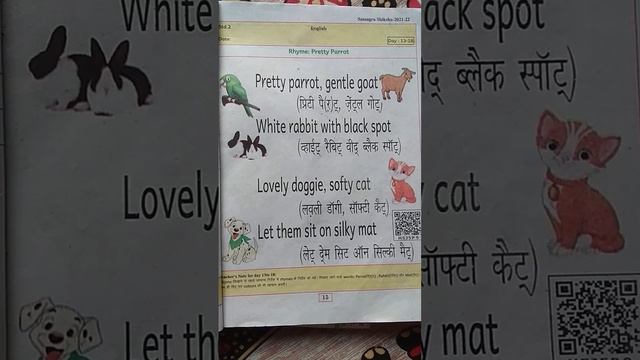 Samagra Shiksha-2021-22
Std.2
English
Date:
Day : 13-18
Rhyme: Pretty Parrot
Pretty parrot, gentle goat
(प्रिटी पै(र)ट्, ज़ेंट्ल गोट्)
White rabbit with black spot
(व्हाईट् रैबिट् वीद् ब्लैक स्पॉट्)
Lovely doggie, softy cat
(लव़ली डॉगी, सॉफ्टी कैट्)
Let them sit on silky mat
(लेट् दे्म सिट ऑन सिल्की मैट्)
Teacher's Notes for day 13to 18:
15
White
ack spot
द् ब्लैक स्पॉट्)
Lovely
cat
ॉफ्टी कैट्)
Let th
mat